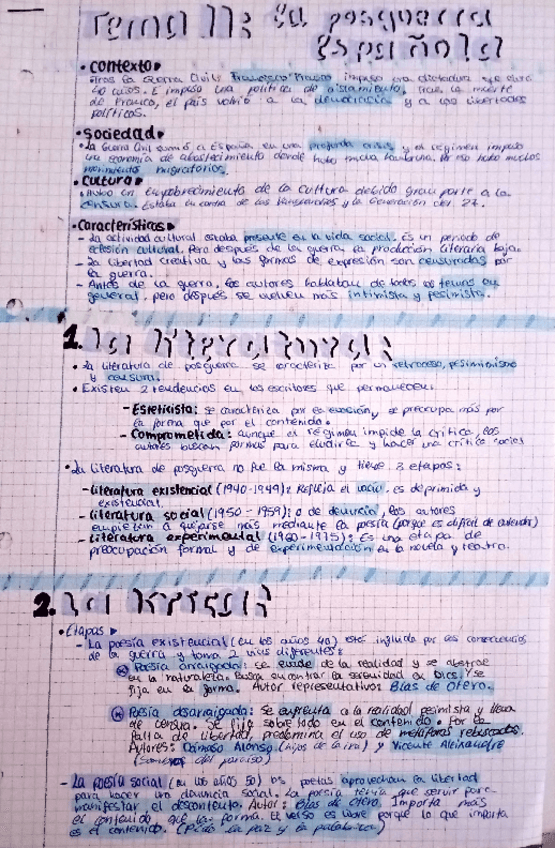 Tema 11: La posguerra
Española
• Contexto
• Tras la Guerra Civil, Francisco Franco impuso una dictadura que duró
40 años. E impuso una política de aislamiento, tras la muerte
de Franco, el país volvió a la democracia y a las libertades
políticas.
• Sociedad
• La Guerra Civil sumió a España en una profunda crisis y el régimen impuso
una economía de abastecimiento donde hubo mucha hambruna, por eso hubo muchos
movimientos migratorios.
• Cultura
• Hubo un empobrecimiento de la cultura debido gran parte a la
censura. Estaba en contra de las Vanguardias y la Generación del 27.
• Características
- La actividad cultural estaba presente en la vida social. Es un periodo de
eclosión cultural, pero después de la guerra la producción literaria baja.
- La libertad creativa y las formas de expresión son censuradas por
la guerra.
- Antes de la guerra, los autores hablaban de todos los temas en
general, pero después se vuelven más intimista y pesimista.
1. La literatura:
• La literatura de posguerra se caracteriza por un retroceso, pesimismo
y censura.
• Existen 2 tendencias en los escritores que permanecen:
- Esteticista: se caracteriza por es evasión, se preocupa más por
la forma que por el contenido.
- Comprometida: aunque el régimen impide la crítica los
autores buscan formas para eludirla y hacer una crítica social
• La literatura de posguerra no fue la misma y tiene 3 etapas:
- Literatura existencial (1940-1949): Refleja el vacío, es deprimida y
existencial.
- Literatura social (1950-1959): o de denuncia, los autores
empiezan a quejarse más mediante la poesía (porque es difícil de entender)
- Literatura experimental (1960-1975): Es una etapa de
preocupación formal y de experimentación en la novela y teatro.
2. La poesía:
• Etapas
- La poesía existencial (en los años 40) está influida por las consecuencias
de la guerra y toma 2 vías diferentes:
Poesía arraigada: se evade de la realidad y se abstrae
en la naturaleza. Busca encontrar la serenidad en Dios y se
fija en la forma. Autor representativos Blas de Otero.
Poesía desarraigada: Se enfrenta a la realidad pesimista y llena
de censura. Se fija sobre todo en el contenido. Por la
falta de libertad, predomina el uso de metáforas rebuscadas.
Autores: Dámaso Alonso (hijos de la ira) y Vicente Aleixandre
(Sombras del paraíso)
- La poesía social (en los años 50) los poetas aprovechan la libertad
para hacer una denuncia social. La poesía tenía que servir para
manifestar el descontento. Autor: Blas de Otero. Importa más
el contenido que la forma. El verso es libre porque lo que importa
es el contenido. (Pido la paz y la palabra)